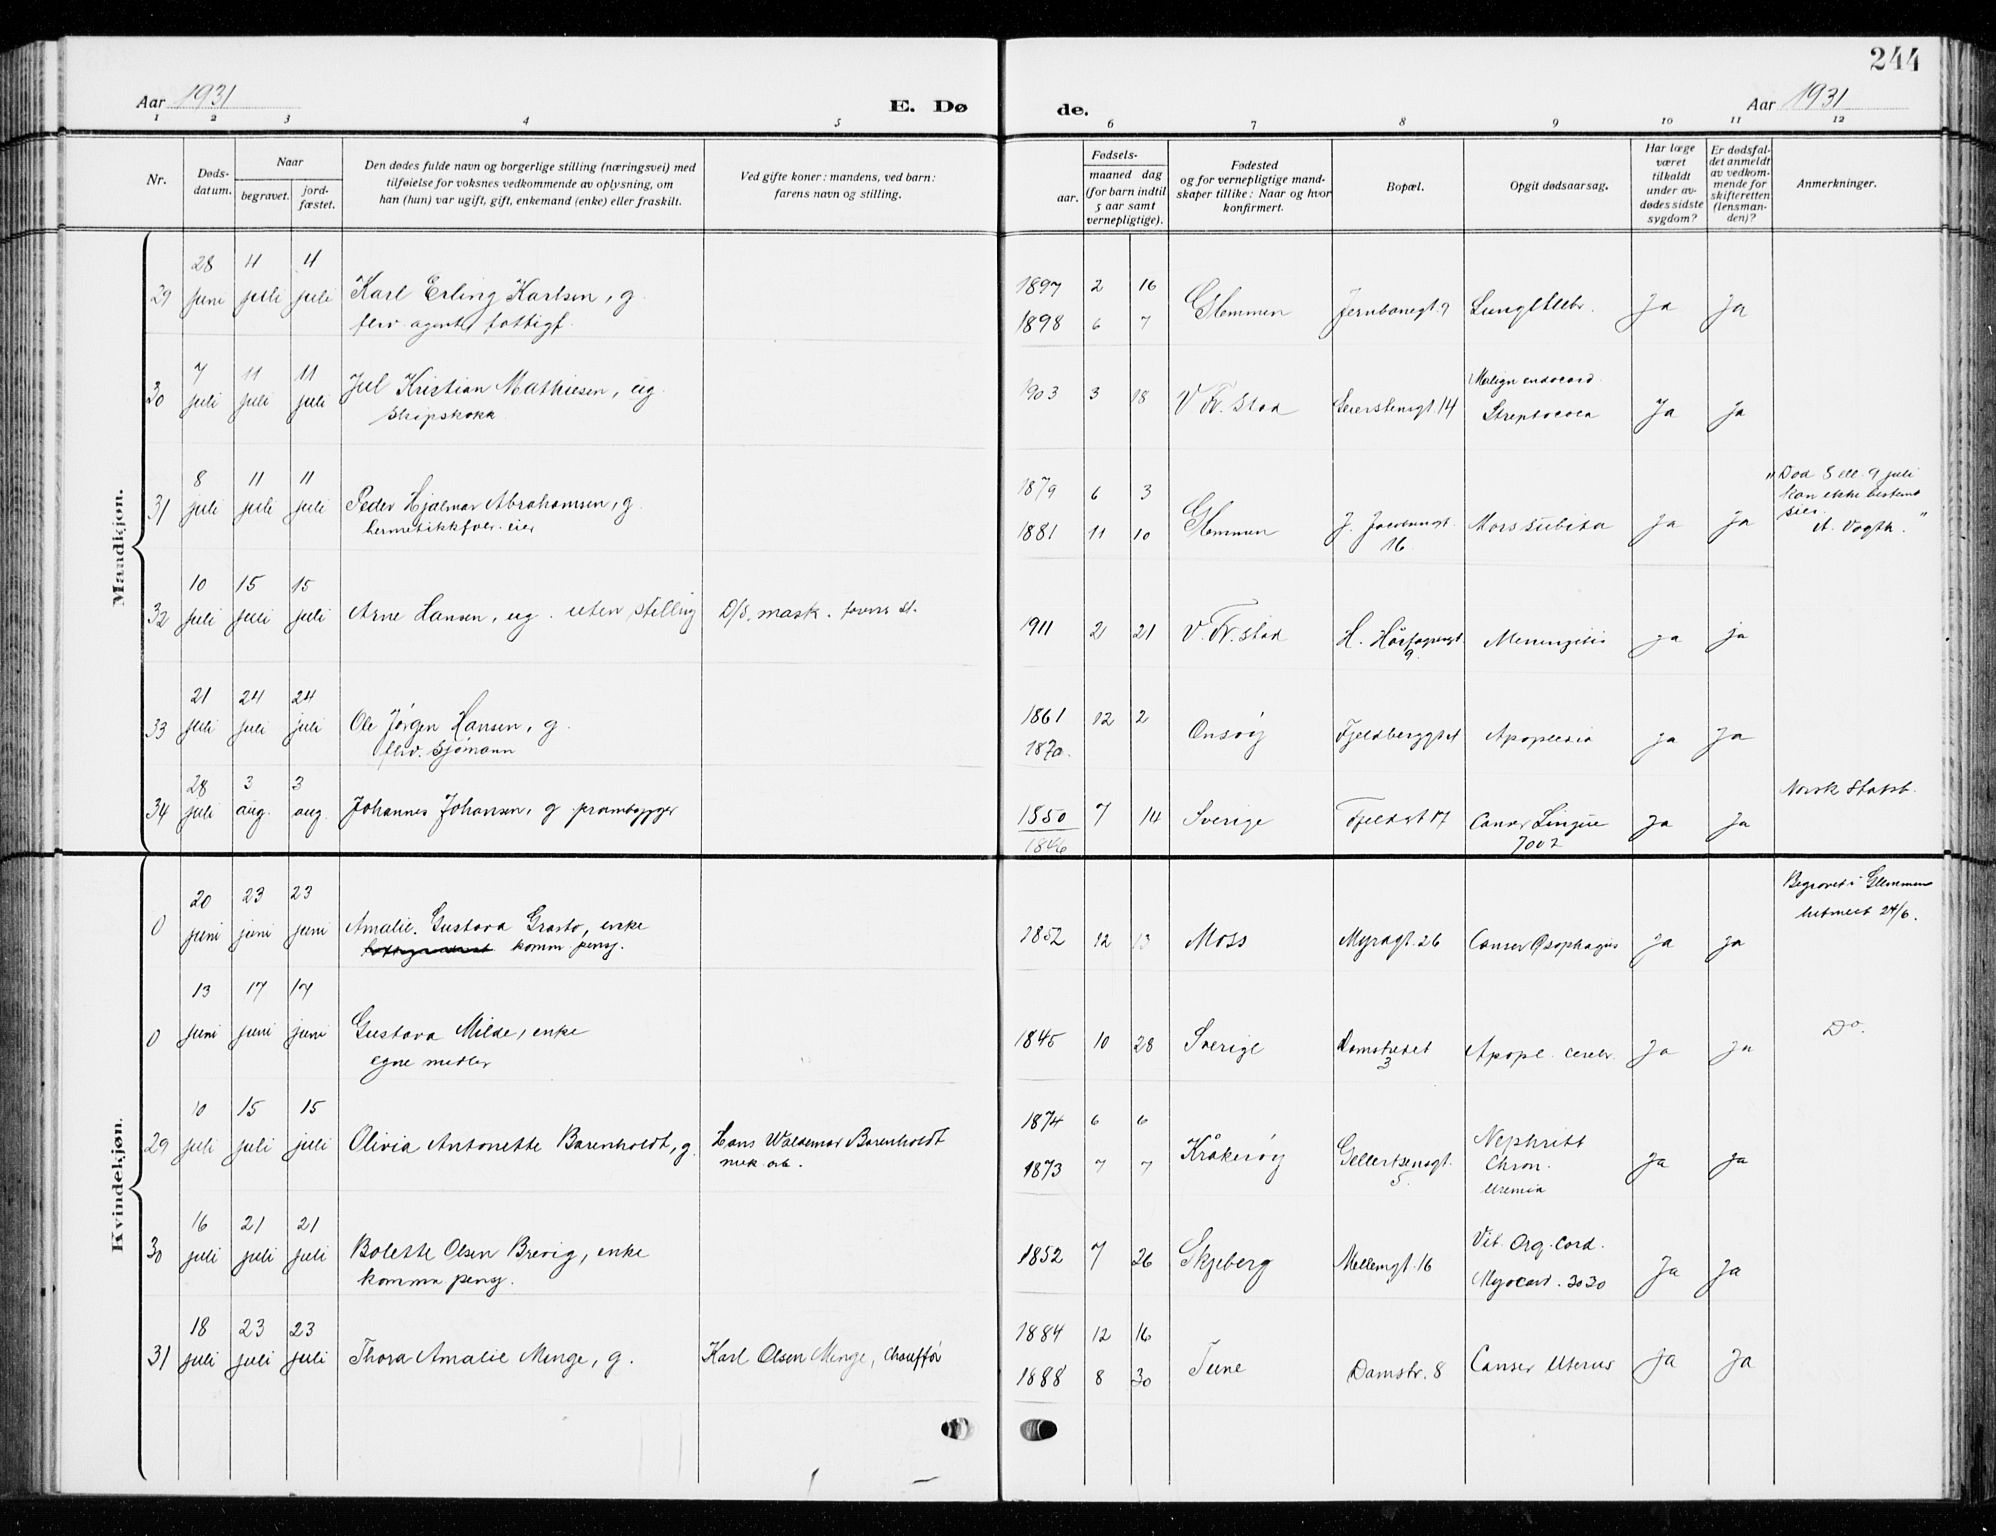 244
Aar 1931
E. Dø
de.
Aar 1931
1 2 3 4 5 6 7 8 9 10 11 12
Nr.
Døds-
datum.
Naar
begravet.
jord-
fæstet.
Den dødes fulde navn og borgerlige stilling (næringsvei) med
tilføielse for voksnes vedkommende av oplysning, om
han (hun) var ugift, gift, enkemand (enke) eller fraskilt.
Ved gifte koner: mandens, ved barn:
farens navn og stilling.
Fødsels-
aar.
maaned dag
(for barn indtil
5 aar samt
vernepligtige).
Fødested
og for vernepligtige mand-
skaper tillike: Naar og hvor
konfirmert.
Bopæl.
Opgit dødsaarsag.
Har læge
været
tilkaldt
under av-
dødes sidste
sygdom?
Er dødsfal-
det anmeldt
av vedkom-
mende for
skifteretten
(lensman-
den)?
Anmerkninger.
Mandkjøn.
28 4 4
29 juni juli juli Karl Erling Karlsen, g.
flrv. agent, fattigf.
1897 2 16
1898 6 7
Glemmen Jernbanegt. 9 Ja Ja
7 11 11
30 juli juli juli Jul Kristian Mathiesen, ug.
Skipskokk
1903 3 18 V Fr. stad 14 Malign endocard.
Ja Ja
8 11 11
31 juli juli juli Peder Hjalmar Abrahamsen, g.
hermetikkfabr. eier
1879 6 3
1881 11 10
Glemmen 16 Mors subita Ja Ja
"Død 8 ell. 9 juli
kan ikke bestemt
sies.
A. Vogth."
10 15 15
32 juli juli juli Arne Hansen, ug. uten stilling D/S. mask.
1911 2 21 V. Fr. stad 9 Meningitis ja ja
21 24 24
33 juli juli juli Ole Jørgen Hansen, g.
flrv. Sjømann
1861 12 2
1870.
Onsøy Fjeldberggt Apoplexia ja Ja
28 3 3
34 juli aug. aug. Johannes Johansen, g prambygger
1850 7 14
1846
Sverige Fjeldgt 17 Canser Lingue Ja Ja
Norsk Statsb.
Kvindekjøn.
20 23 23
0 juni juni juni Amalie Gustava enke
komm. pensj.
1852 12 13 Moss Myragt. 26 Canser Øsophagus ja ja
Begravet i Glemmen
24/6.
13 17 17
0 juni juni juni Gustava Milde, enke
egne midler
1845 10 28 Sverige Damstrædet
3 Apopl. cerebr. Ja Ja
Do.
10 15 15
29 juli juli juli Olivia Antonette Barenholdt, g. Hans Waldemar Barenholdt
mek. arb.
1874 6 6
1873 7 7
Kråkerøy Gellertsensgt.
5. Nephritt
Chron.
Uremia Ja Ja
16 21 21
30 juli juli juli Bolette Olsen Brevig, enke
komm. pensj.
1852 7 26 Skjeberg Mellemgt. 16 Vit. Org. Cord.
Myocard. Ja Ja
18 23 23
31 juli juli juli Thora Amalie Menge, g. Karl Olsen Menge, chauffør
1884 12 16
1888 8 30
Tune Damstr. 8 Canser Uterus Ja Ja